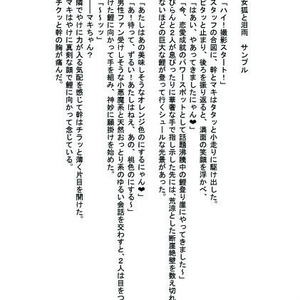 女狐と泪雨 サンプル
「ハイ！撮影スタート！」
スタッフの合図に、幹とマキはタタッと小走りに駆け出し、
ピタッと止まり、後ろを振り返ると、満面の笑顔を浮かべ、
「はあい、やあってきましたにゃん♥」
「今、恋愛成就のパワースポットとして話題沸騰中の鯉登り崖にやってきました〜」
ぴらんと２人が息ぴったりに華奢な手で指し示した先には、荒涼とした断崖絶壁を数え切れ
ないほどの巨大な鯉が登って行くシュールな光景があった。
「あたしはあの美味しそうなオレンジ色のにするにゃん♥」
「あ！待って、ずるい！あたしはねえ、あの、桃色のにする〜」
男性ファン受けしそうな小悪魔系と天然おっとり系のゆるい会話を交わすと、２人は目をつ
た鯉に向かって手を組み、神妙に願掛けを始めた。
――マキちゃん？
隣でやけに力が入る気配を感じて幹はチラッと薄く片目を開けた。
マキはやけに真剣な顔で鯉に向かって念じている。
チクッと幹の胸が痛んだ。